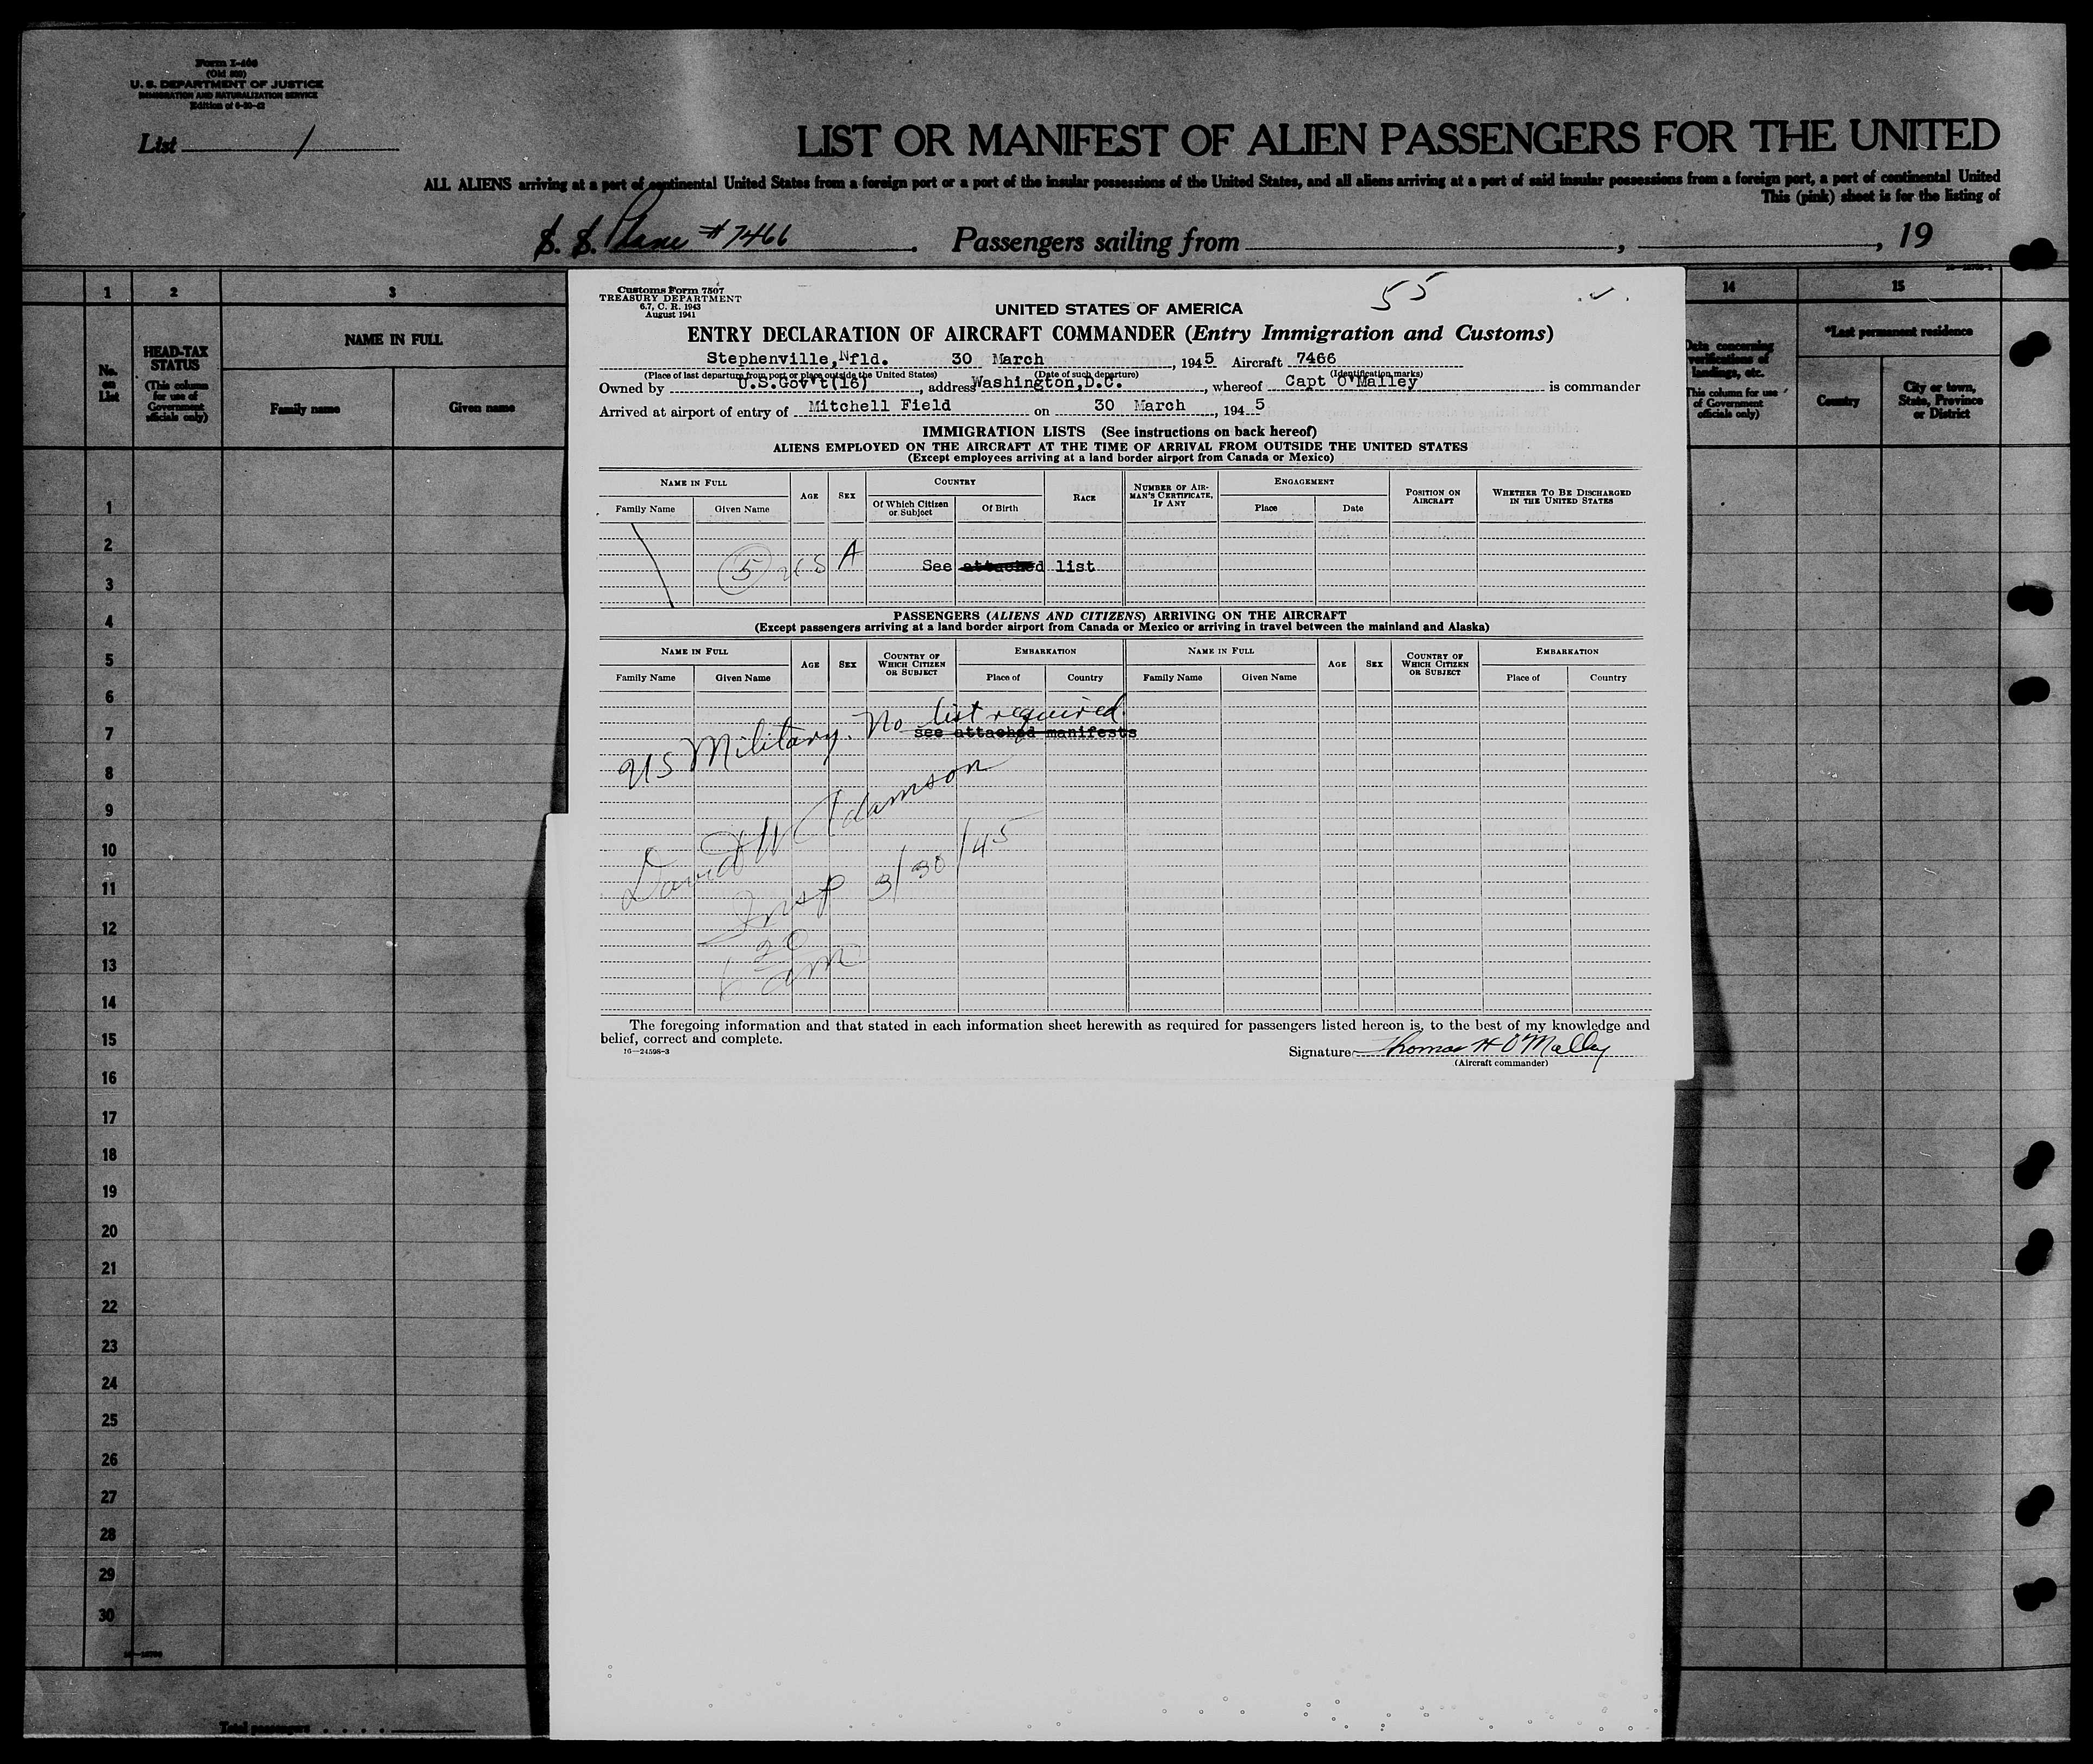 Form I-466
(Old 500)
U. S. DEPARTMENT OF JUSTICE
IMMIGRATION AND NATURALIZATION SERVICE
Edition of
List 1
LIST OR MANIFEST OF ALIEN PASSENGERS FOR THE UNITED
ALL ALIENS arriving at a port of continental United States from a foreign port or a port of the insular possessions of the United States, and all aliens arriving at a port of said insular possessions from a foreign port, a port of continental United
This (pink) sheet is for the listing of
S. S. Plane #7466. Passengers sailing from , , 19
1 2 3
No. on List
HEAD-TAX STATUS
(This column for use of Government officials only)
NAME IN FULL
Family name Given name
14 15
Data concerning verifications of landings, etc.
This column for use of Government officials only)
*Last permanent residence
Country
City or town, State, Province or District
Customs Form 7507
TREASURY DEPARTMENT
6.7, C. R. 1943
August 1941
55
UNITED STATES OF AMERICA
ENTRY DECLARATION OF AIRCRAFT COMMANDER (Entry Immigration and Customs)
Stephenville, Nfld. 30 March, 1945 Aircraft 7466
(Place of last departure from port or place outside the United States) (Date of such departure) (Identification marks)
Owned by U.S.Gov't(16), address Washington,D.C., whereof Capt O'Malley is commander
Arrived at airport of entry of Mitchell Field on 30 March, 1945
IMMIGRATION LISTS (See instructions on back hereof)
ALIENS EMPLOYED ON THE AIRCRAFT AT THE TIME OF ARRIVAL FROM OUTSIDE THE UNITED STATES
(Except employees arriving at a land border airport from Canada or Mexico)
NAME IN FULL AGE SEX COUNTRY RACE NUMBER OF AIRMAN'S CERTIFICATE, IF ANY ENGAGEMENT POSITION ON AIRCRAFT WHETHER TO BE DISCHARGED IN THE UNITED STATES
Family Name Given Name Of Which Citizen or Subject Of Birth Place Date
5 US A
See attached list
PASSENGERS (ALIENS AND CITIZENS) ARRIVING ON THE AIRCRAFT
(Except passengers arriving at a land border airport from Canada or Mexico or arriving in travel between the mainland and Alaska)
NAME IN FULL AGE SEX COUNTRY OF WHICH CITIZEN OR SUBJECT EMBARKATION NAME IN FULL AGE SEX COUNTRY OF WHICH CITIZEN OR SUBJECT EMBARKATION
Family Name Given Name Place of Country Family Name Given Name Place of Country
US Military. No list required.
see attached manifests
David W Adamson
Insp 3/30/45
6 20 am
The foregoing information and that stated in each information sheet herewith as required for passengers listed hereon is, to the best of my knowledge and
belief, correct and complete.
16—24598-3
Signature Thomas H O'Malley
(Aircraft commander)
1
2
3
4
5
6
7
8
9
10
11
12
13
14
15
16
17
18
19
20
21
22
23
24
25
26
27
28
29
30
Total passengers